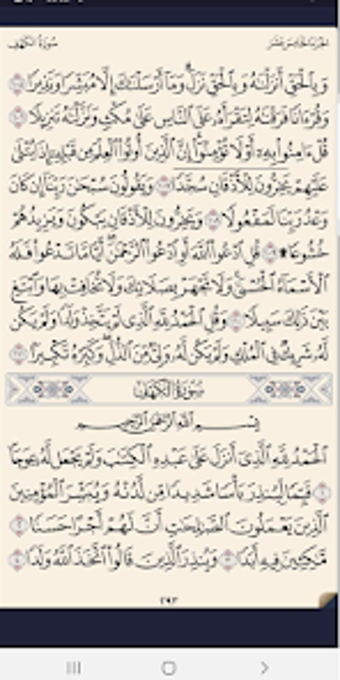 الجزء الخامس عشر سورة الكهف
وَبِالْحَقِّ أَنزَلْنَاهُ وَبِالْحَقِّ نَزَلَ وَمَا أَرْسَلْنَاكَ إِلَّا مُبَشِّرًا وَنَذِيرًا ١٠٥
وَقُرْآنًا فَرَقْنَاهُ لِتَقْرَأَهُ عَلَى النَّاسِ عَلَىٰ مُكْثٍ وَنَزَّلْنَاهُ تَنزِيلًا ١٠٦
قُلْ آمِنُوا بِهِ أَوْ لَا تُؤْمِنُوا إِنَّ الَّذِينَ أُوتُوا الْعِلْمَ مِن قَبْلِهِ إِذَا يُتْلَىٰ
عَلَيْهِمْ يَخِرُّونَ لِلْأَذْقَانِ سُجَّدًا ١٠٧ وَيَقُولُونَ سُبْحَانَ رَبِّنَا إِن كَانَ
وَعْدُ رَبِّنَا لَمَفْعُولًا ١٠٨ وَيَخِرُّونَ لِلْأَذْقَانِ يَبْكُونَ وَيَزِيدُهُمْ
خُشُوعًا ۩ ١٠٩ قُلِ ادْعُوا اللَّهَ أَوِ ادْعُوا الرَّحْمَٰنَ أَيًّا مَّا تَدْعُوا فَلَهُ
الْأَسْمَاءُ الْحُسْنَىٰ وَلَا تَجْهَرْ بِصَلَاتِكَ وَلَا تُخَافِتْ بِهَا وَابْتَغِ
بَيْنَ ذَٰلِكَ سَبِيلًا ١١٠ وَقُلِ الْحَمْدُ لِلَّهِ الَّذِي لَمْ يَتَّخِذْ وَلَدًا وَلَمْ يَكُن
لَّهُ شَرِيكٌ فِي الْمُلْكِ وَلَمْ يَكُن لَّهُ وَلِيٌّ مِّنَ الذُّلِّ وَكَبِّرْهُ تَكْبِيرًا ١١١
سُورَةُ الْكَهْفِ
بِسْمِ اللَّهِ الرَّحْمَٰنِ الرَّحِيمِ
الْحَمْدُ لِلَّهِ الَّذِي أَنزَلَ عَلَىٰ عَبْدِهِ الْكِتَابَ وَلَمْ يَجْعَل لَّهُ عِوَجًا
١ قَيِّمًا لِّيُنذِرَ بَأْسًا شَدِيدًا مِّن لَّدُنْهُ وَيُبَشِّرَ الْمُؤْمِنِينَ
الَّذِينَ يَعْمَلُونَ الصَّالِحَاتِ أَنَّ لَهُمْ أَجْرًا حَسَنًا ٢
مَّاكِثِينَ فِيهِ أَبَدًا ٣ وَيُنذِرَ الَّذِينَ قَالُوا اتَّخَذَ اللَّهُ وَلَدًا ٤
٢٩٣